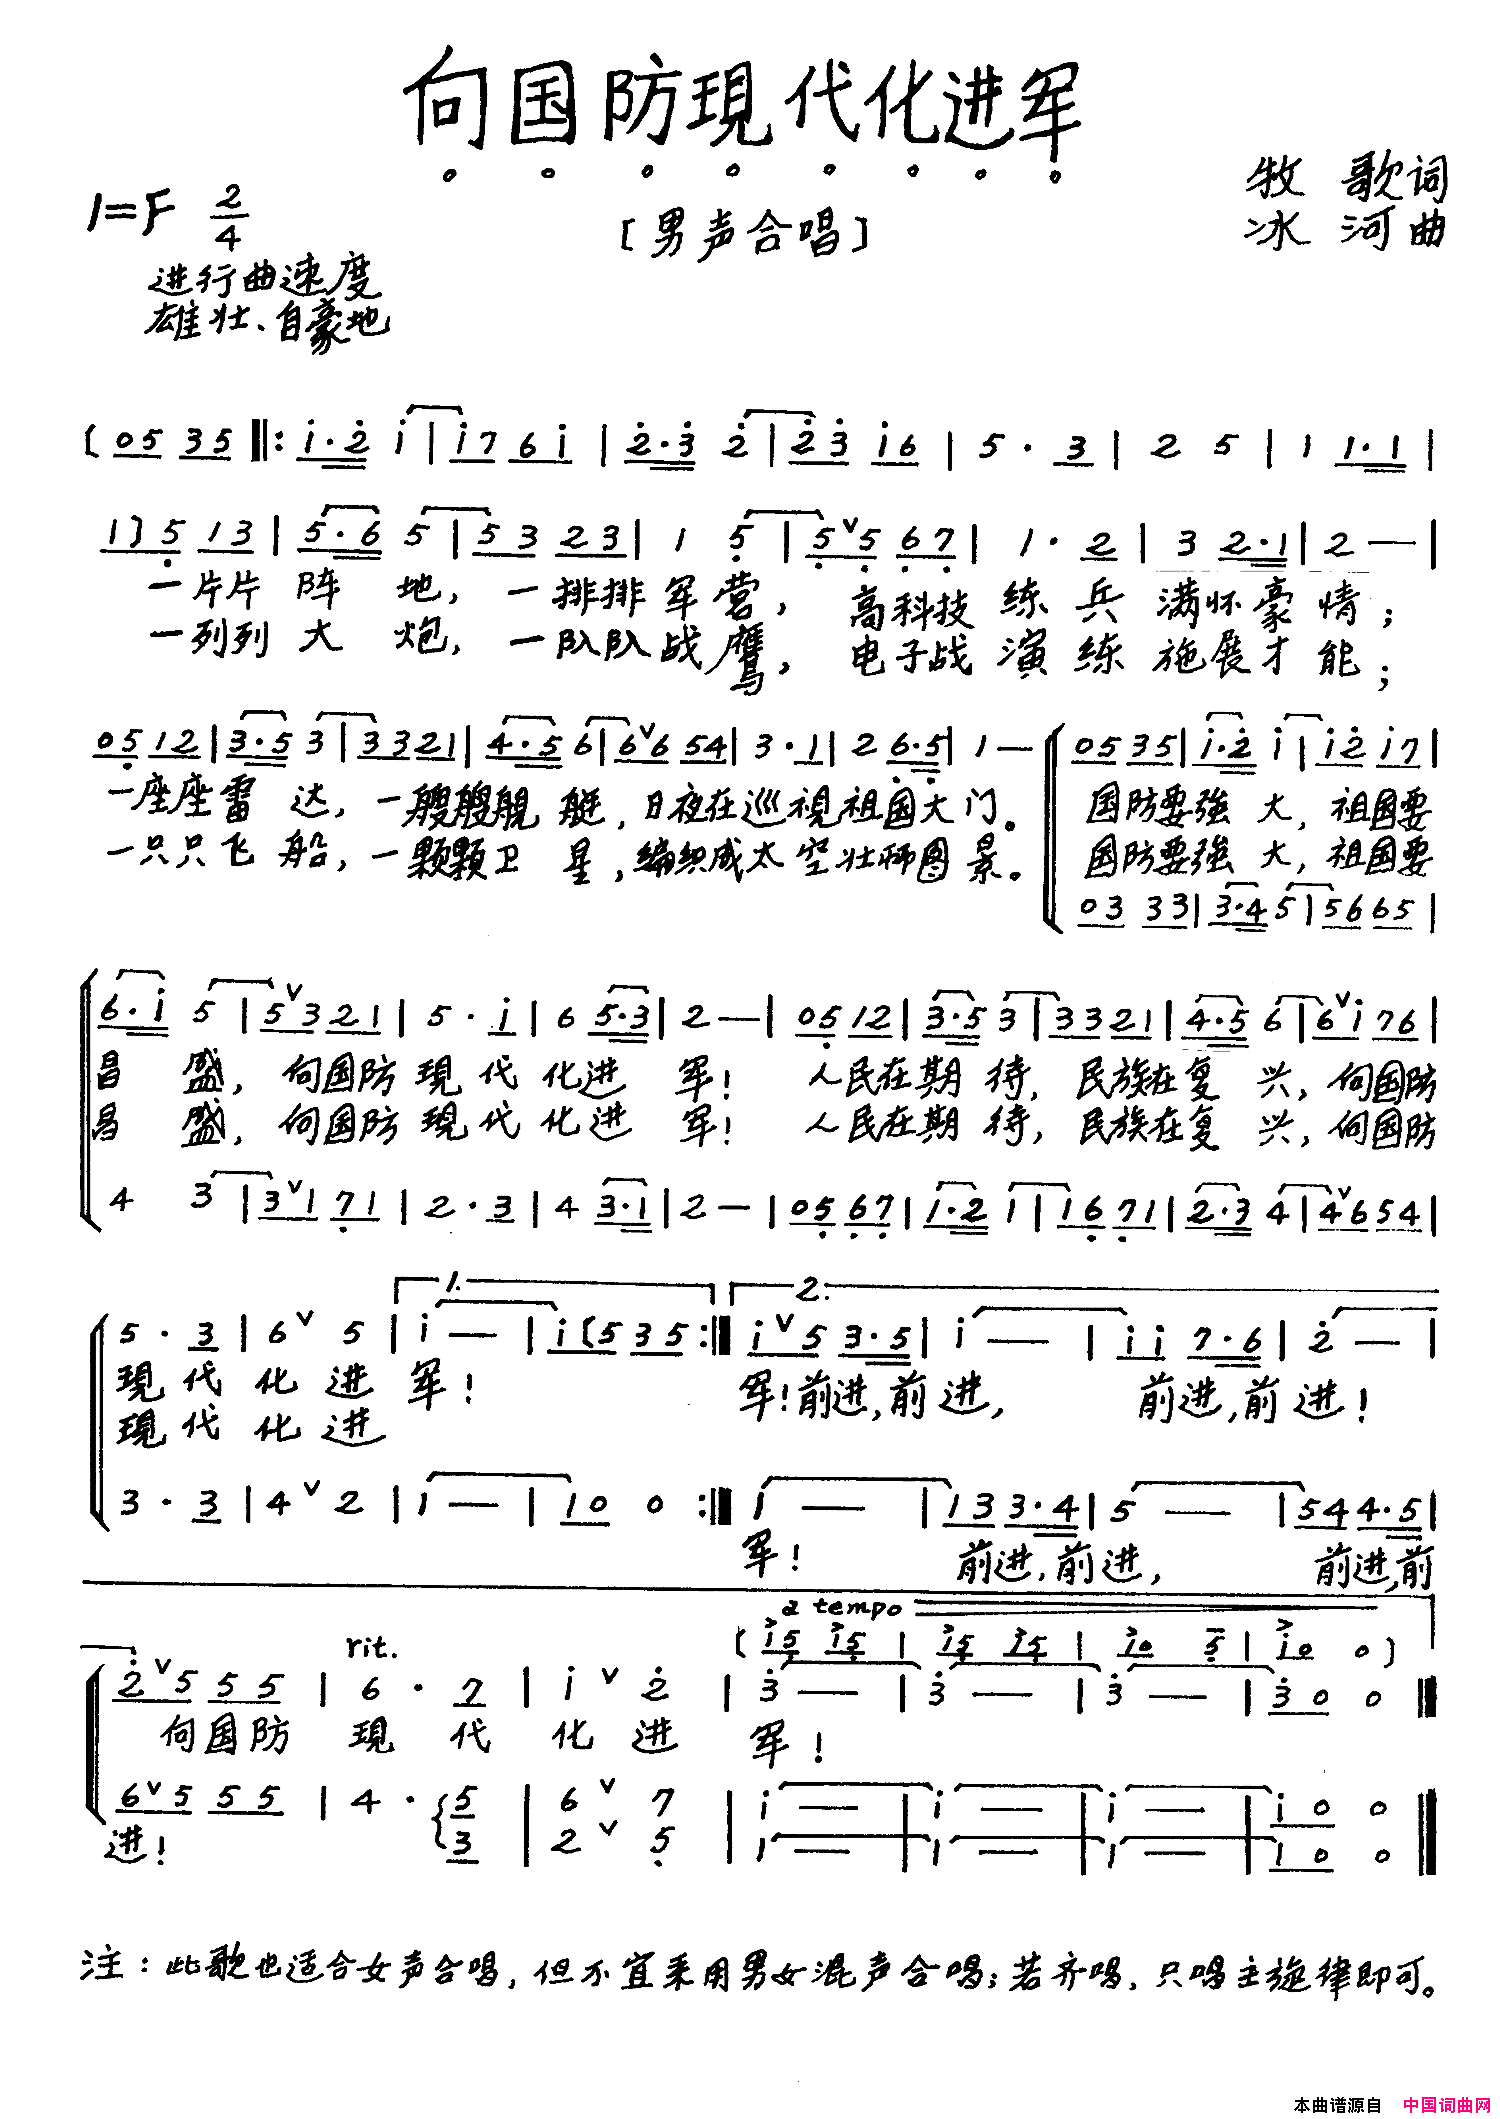 向国防現代化进军
1=F 2/4
[男声合唱]
牧 歌词
冰 河曲
进行曲速度
雄壮、自豪地
(05 35 ‖: i·2 i | i7 6i | 2·3 2 | 23 i6 | 5·3 | 2 5 | 1 1·1 |
1)5 13 | 5·6 5 | 53 23 | 1 5 | 5∨5 67 | 1·2 | 3 2·1 | 2 — |
一片片 阵 地, 一排排军营, 高科技练兵满怀豪情;
一列列大 炮, 一队队战鹰, 电子战演练施展才能;
05 12 | 3·5 3 | 33 21 | 4·5 6 | 6∨6 54 | 3·1 | 2 6·5 | 1 — | 05 35 | i·2 i | i2 i7 |
一座座雷 达, 一艘艘舰 艇, 日夜在巡視祖国大门。 国防要強 大, 祖国要
一只只飞 船, 一颗颗卫 星, 编织成太空壮丽图景。 国防要強 大, 祖国要
03 33 | 3·4 5 | 56 65 |
6·i 5 | 5∨3 21 | 5·i | 6 5·3 | 2 — | 05 12 | 3·5 3 | 33 21 | 4·5 6 | 6∨i 76 |
昌 盛, 向国防現代化进 军! 人民在期 待, 民族在复 兴, 向国防
昌 盛, 向国防現代化进 军! 人民在期 待, 民族在复 兴, 向国防
4 3 | 3∨1 71 | 2·3 | 4 3·1 | 2 — | 05 67 | 1·2 1 | 16 71 | 2·3 4 | 4∨6 54 |
1. 2.
5·3 | 6∨5 | i — | i(5 35 :‖ i∨5 3·5 | i — | ii 7·6 | 2 — |
現代化进军! 军!前进,前进, 前进,前进!
現代化进
3·3 | 4∨2 | 1 — | 10 0 :‖ 1 — | 13 3·4 | 5 — | 54 4·5 |
军! 前进,前进, 前进,前
a tempo
rit. (i5 i5 | i5 i5 | i0 5 | i0 0)
2∨5 55 | 6·7 | i∨2 | 3 — | 3 — | 3 — | 30 0 ‖
向国防 現代化进 军!
6∨5 55 | 4·5 | 6∨7 | i — | i — | i — | i0 0 ‖
3 | 2∨5 | 1 — | 1 — | 1 — | 10 0
进!
注:此歌也适合女声合唱,但不宜采用男女混声合唱;若齐唱,只唱主旋律即可。
本曲谱源自 中国词曲网